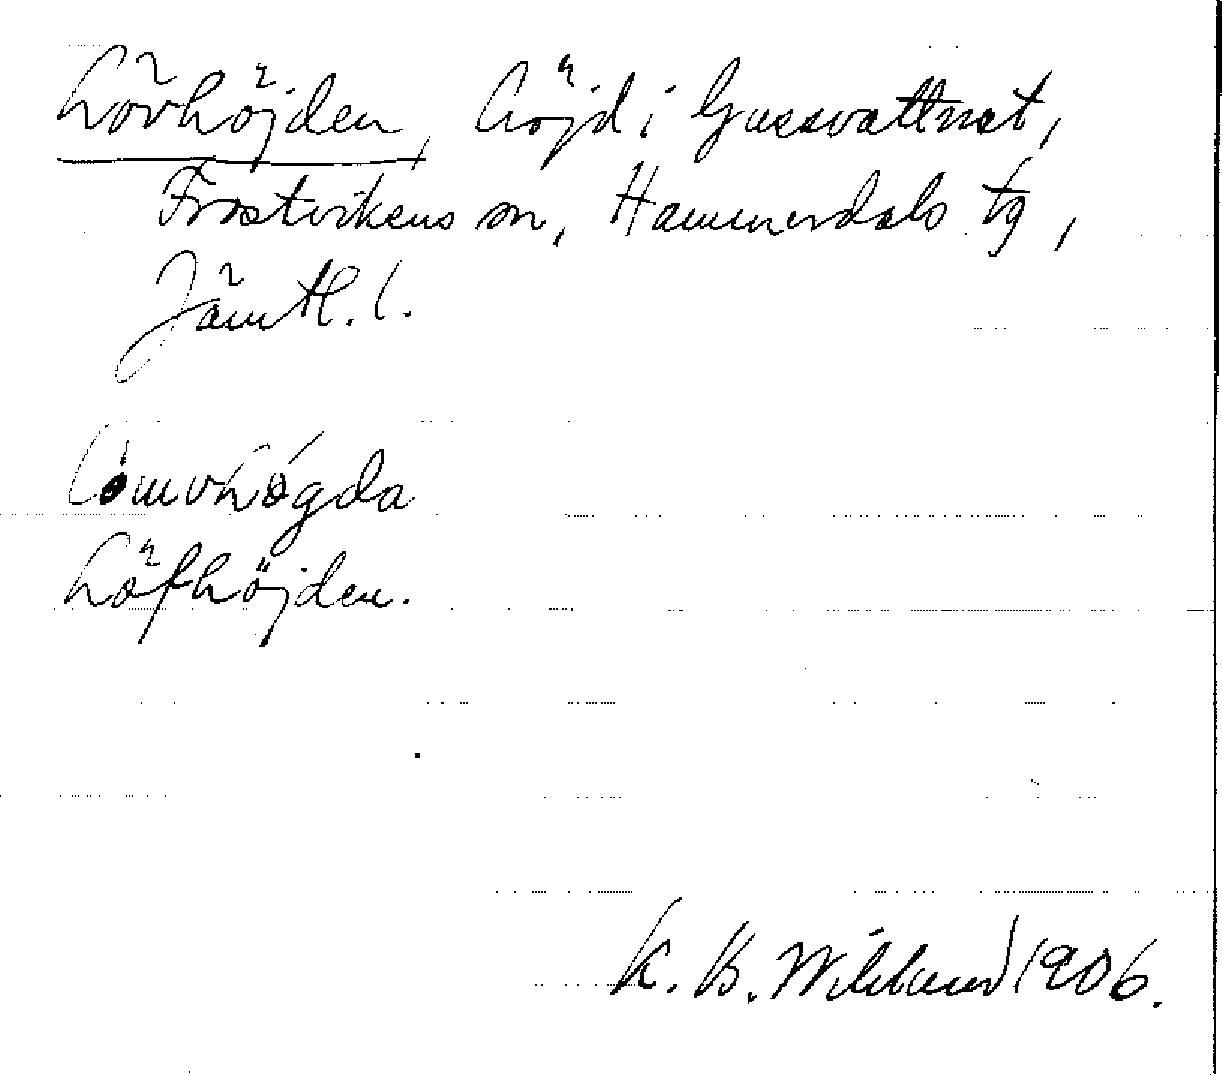 Lövhöjden, höjd i Gussvattnet,
Frostvikens sn, Hammerdals tg,
Jämtl. l.
Löfhöjden.
K. B. Wiklund 1906.